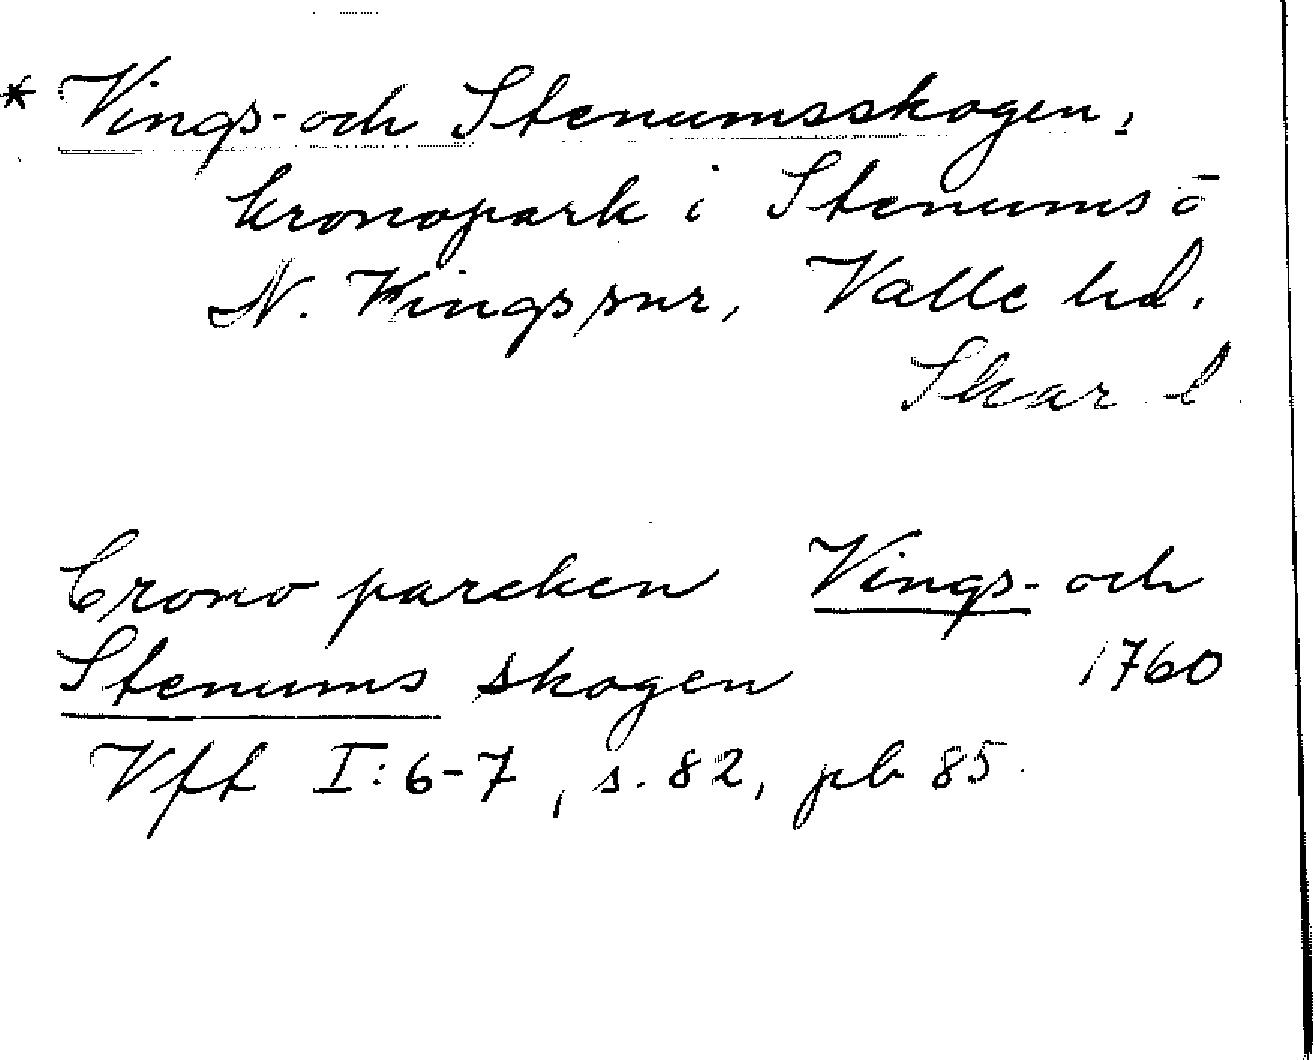 * Vings- och Stenumsskogen,
kronopark i Stenums o
N. Vings snr, Valle hd.
Skar. l.
Crono parcken Vings- och
Stenums skogen 1760
Vff I: 6-7, s. 82, pb 85.